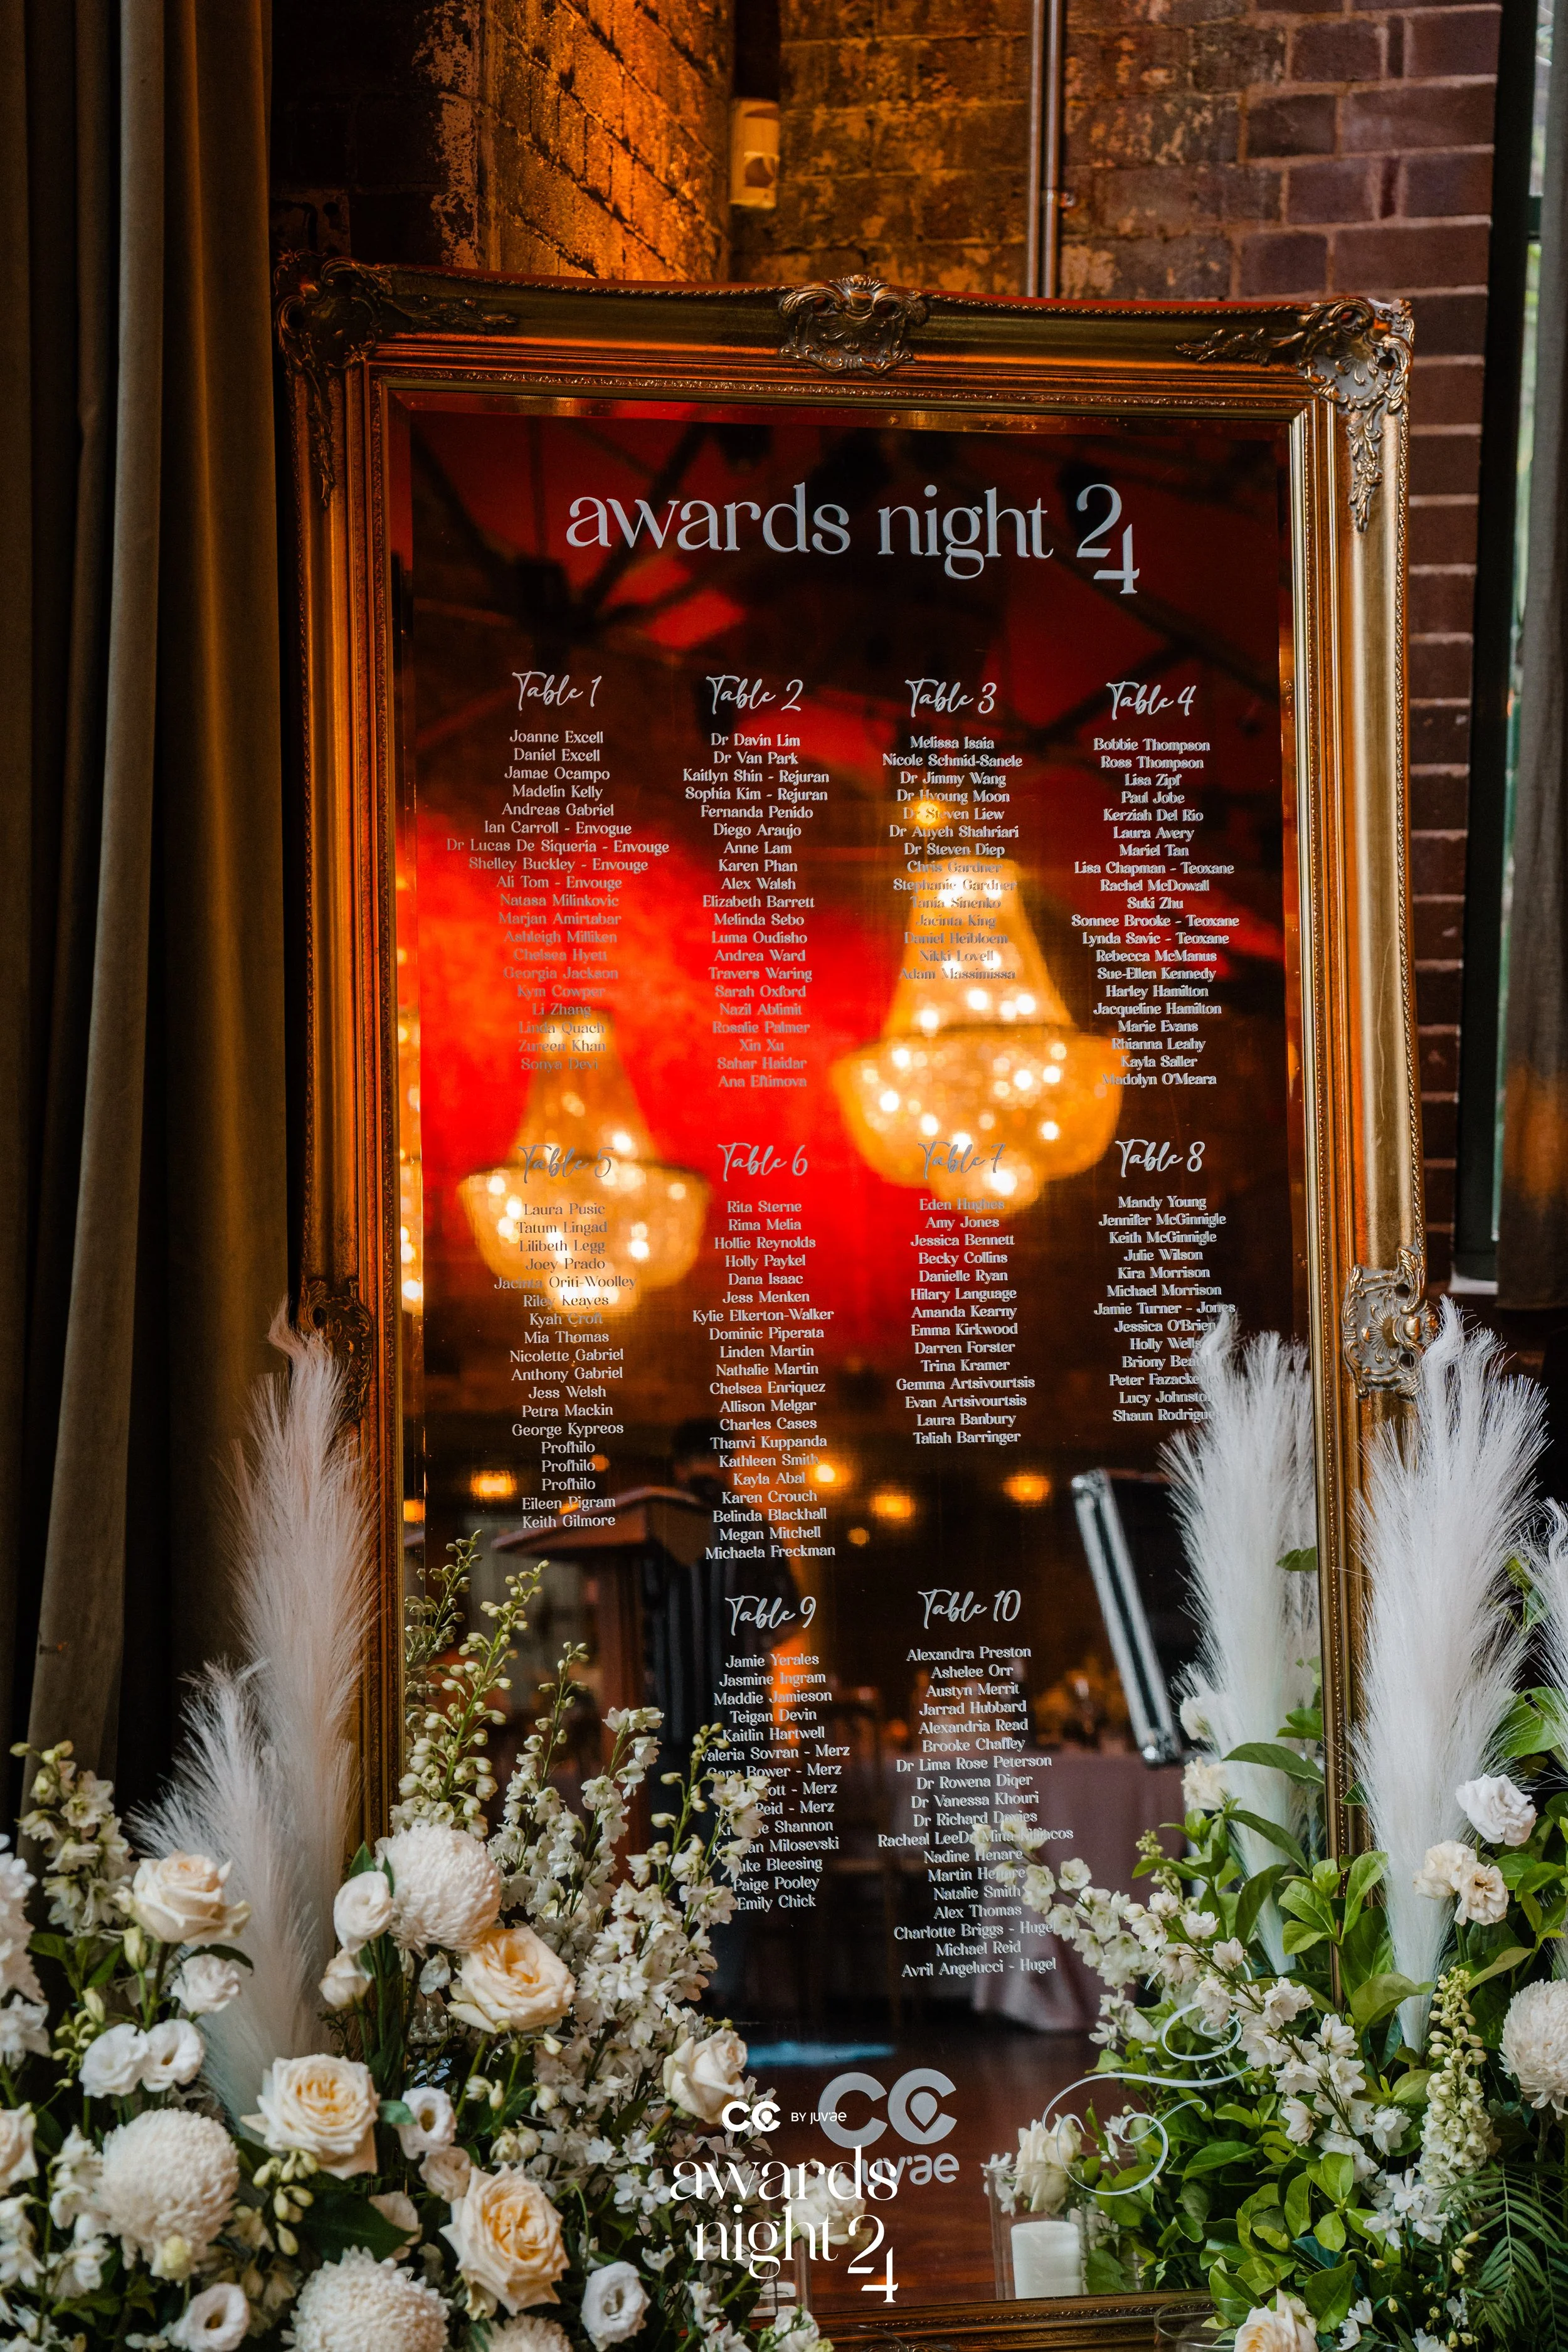 awards night 24
Table 1
Joanne Excell
Daniel Excell
Jamae Ocampo
Madelin Kelly
Andreas Gabriel
Ian Carroll - Envogue
Dr Lucas De Siqueria - Envouge
Shelley Buckley - Envouge
Ali Tom - Envouge
Natasa Milinkovic
Marjan Amirtabar
Ashleigh Milliken
Chelsea Hyett
Georgia Jackson
Kym Cowper
Li Zhang
Linda Quach
Zureen Khan
Sonya Devi
Table 2
Dr Davin Lim
Dr Van Park
Kaitlyn Shin - Rejuran
Sophia Kim - Rejuran
Fernanda Penido
Diego Araujo
Anne Lam
Karen Phan
Alex Walsh
Elizabeth Barrett
Melinda Sebo
Luma Oudisho
Andrea Ward
Travers Waring
Sarah Oxford
Nazil Ablimit
Rosalie Palmer
Xin Xu
Sahar Haidar
Ana Eftimova
Table 3
Melissa Isaia
Nicole Schmid-Sanele
Dr Jimmy Wang
Dr Hyoung Moon
Dr Steven Liew
Dr Atiyeh Shahriari
Dr Steven Diep
Chris Gardner
Stephanie Gardner
Tania Sinenko
Jacinta King
Daniel Heibloem
Nikki Lovell
Adam Massimissa
Table 4
Bobbie Thompson
Ross Thompson
Lisa Zipf
Paul Jobe
Kerziah Del Rio
Laura Avery
Mariel Tan
Lisa Chapman - Teoxane
Rachel McDowall
Suki Zhu
Sonnee Brooke - Teoxane
Lynda Savic - Teoxane
Rebecca McManus
Sue-Ellen Kennedy
Harley Hamilton
Jacqueline Hamilton
Marie Evans
Rhianna Leahy
Kayla Saller
Madolyn O'Meara
Table 5
Laura Pusic
Tatum Lingad
Lilibeth Legg
Joey Prado
Jacinta Oriti-Woolley
Riley Keayes
Kyah Croft
Mia Thomas
Nicolette Gabriel
Anthony Gabriel
Jess Welsh
Petra Mackin
George Kypreos
Profhilo
Profhilo
Profhilo
Eileen Pigram
Keith Gilmore
Table 6
Rita Sterne
Rima Melia
Hollie Reynolds
Holly Paykel
Dana Isaac
Jess Menken
Kylie Elkerton-Walker
Dominic Piperata
Linden Martin
Nathalie Martin
Chelsea Enriquez
Allison Melgar
Charles Cases
Thanvi Kuppanda
Kathleen Smith
Kayla Abal
Karen Crouch
Belinda Blackhall
Megan Mitchell
Michaela Freckman
Table 7
Eden Hughes
Amy Jones
Jessica Bennett
Becky Collins
Danielle Ryan
Hilary Language
Amanda Kearny
Emma Kirkwood
Darren Forster
Trina Kramer
Gemma Artsivourtsis
Evan Artsivourtsis
Laura Banbury
Taliah Barringer
Table 8
Mandy Young
Jennifer McGinnigle
Keith McGinnigle
Julie Wilson
Kira Morrison
Michael Morrison
Jamie Turner - Jones
Jessica O'Brien
Holly Wells
Briony
Peter
Lucy
Shaun
Table 9
Jamie Yerales
Jasmine Ingram
Maddie Jamieson
Teigan Devin
Kaitlin Hartwell
Valeria Sovran - Merz
Bower - Merz
- Merz
- Merz
Shannon
Milosevski
Bleesing
Paige Pooley
Emily Chick
Table 10
Alexandra Preston
Ashelee Orr
Austyn Merrit
Jarrad Hubbard
Alexandria Read
Brooke Chaffey
Dr Lima Rose Peterson
Dr Rowena Diqer
Dr Vanessa Khouri
Dr Richard Davies
Racheal LeeDr Mina
Nadine Henare
Martin Henare
Natalie Smith
Alex Thomas
Charlotte Briggs - Hugel
Michael Reid
Avril Angelucci - Hugel
CC
juv'ae
CC BY juv'ae
awards
night 24